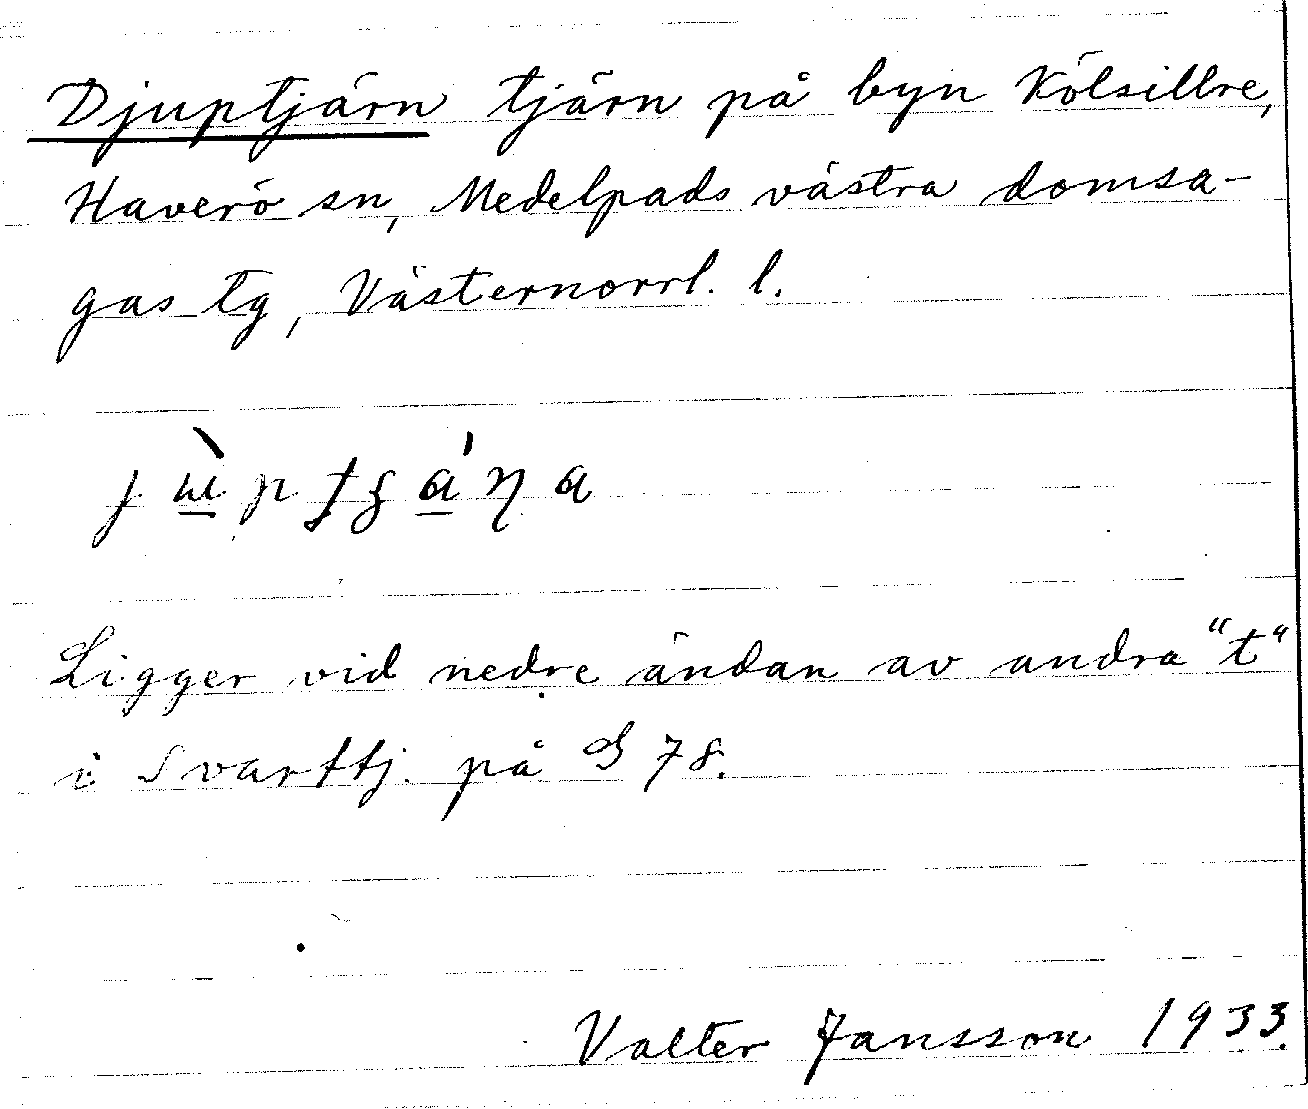 Djuptjärn tjärn på byn Kölsillre,
Haverö sn, Medelpads västra domsa-
gas tg, Västernorrl. l.
Ligger vid nedre ändan av andra "t"
i Svarttj. på G 78.
Valter Jansson 1933.